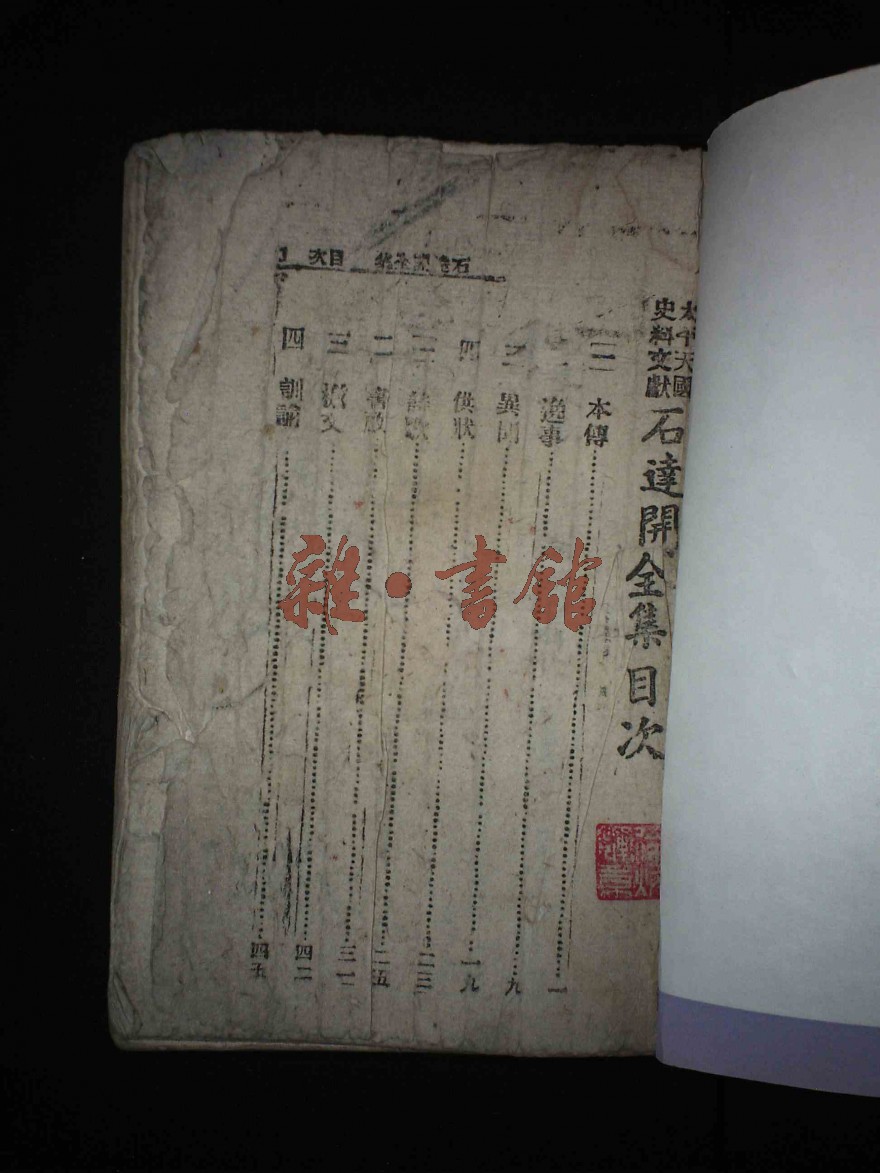 太平天國
史料文獻
石達開全集目次
石達開全集 目次
一 本傳……一
二 逸事……九
三 異聞……一九
四 供狀……二三
詩歌……二五
二 書啟……三一
三 檄文……四二
四 訓諭……四五
雜·書館